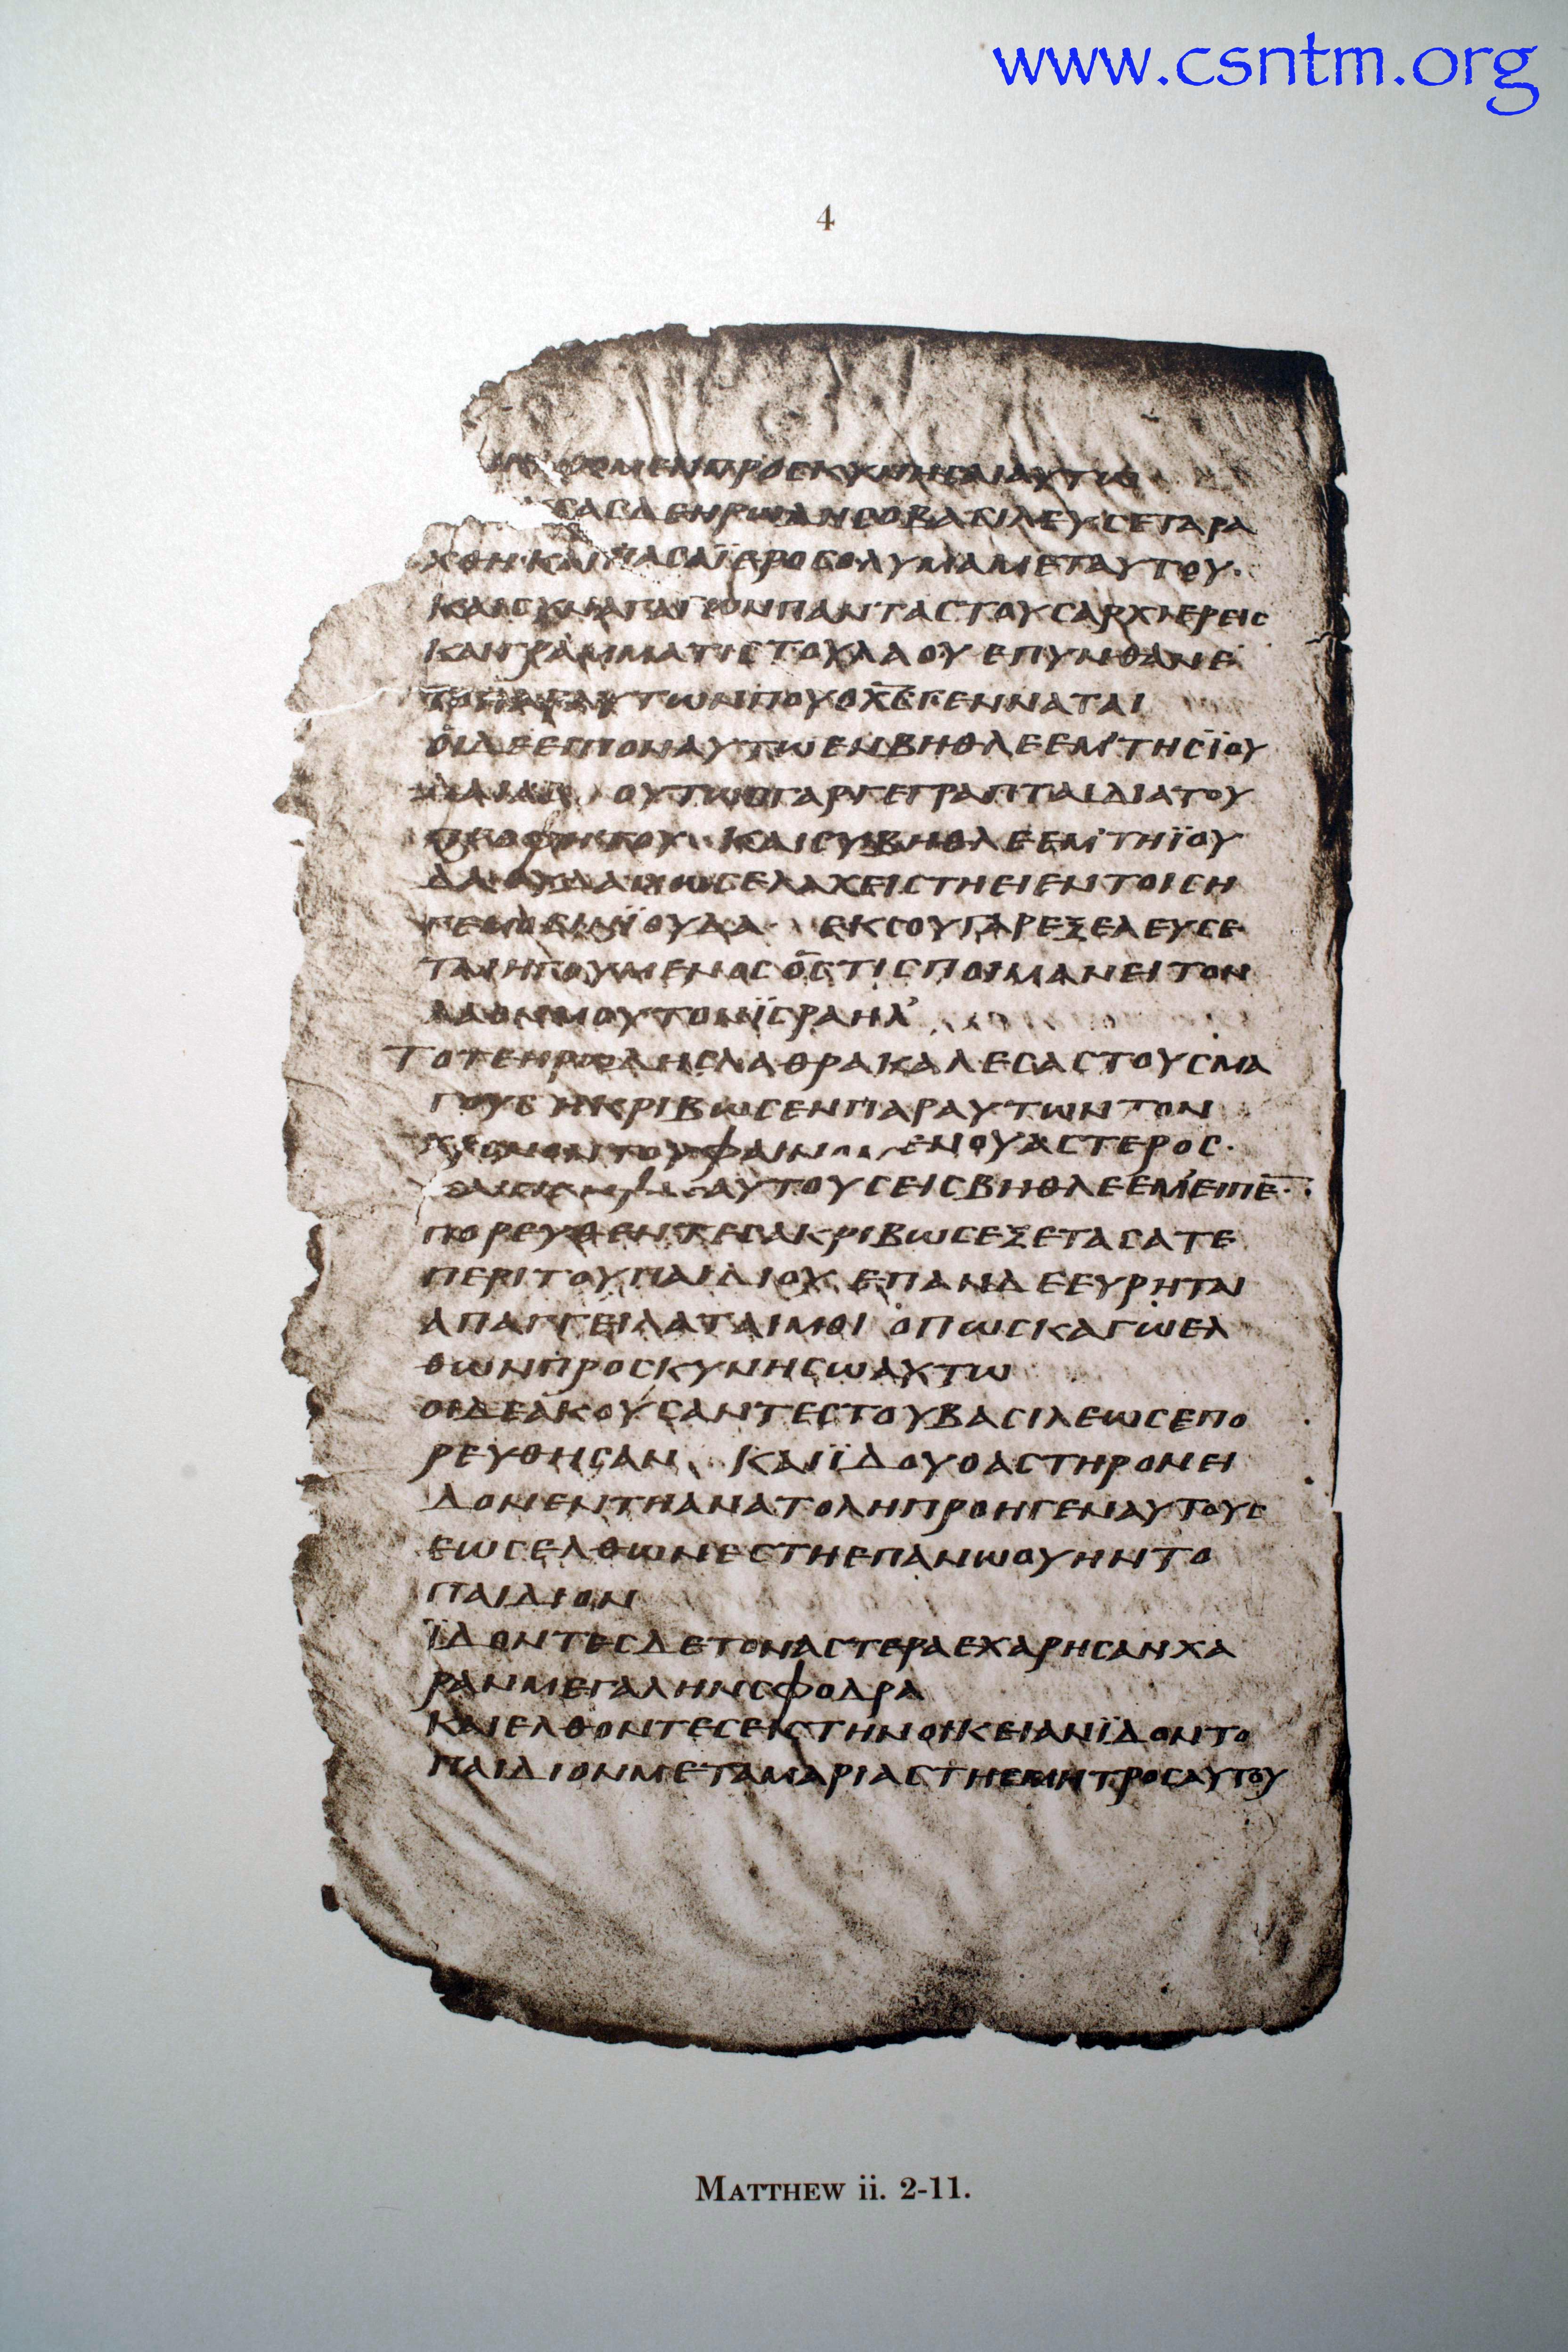 www.csntm.org
4
ΜΕΝΠΡΟCΚΥΝΗCΑΙΑΥΤΩ
CΑCΔΕΗΡΩΔΗCΟΒΑCΙΛΕΥCΕΤΑΡΑ
ΧΘΗ·ΚΑΙΠΑCΑΪΕΡΟCΟΛΥΜΑΜΕΤΑΥΤΟΥ·
ΚΑΙCΥΝΑΓΑΓΩΝΠΑΝΤΑCΤΟΥCΑΡΧΙΕΡΕΙC
ΚΑΙΓΡΑΜΜΑΤΙCΤΟΥΛΑΟΥΕΠΥΝΘΑΝΕ
ΑΥΤΩΝΠΟΥΟΧ̅C̅ΓΕΝΝΑΤΑΙ
ΟΙΔΕΕΙΠΟΝΑΥΤΩΕΝΒΗΘΛΕΕΜ'ΤΗCΪΟΥ
ΟΥΤΩCΓΑΡΓΕΓΡΑΠΤΑΙΔΙΑΤΟΥ
ΠΡΟΦΗΤΟΥ ΚΑΙCΥΒΗΘΛΕΕΜ'ΤΗΪΟΥ
ΔΑΟΥΔΑΜΩCΕΛΑΧΕΙCΤΗΕΙΕΝΤΟΙCΗ
ΓΕΜΟCΙΝΪΟΥΔΑ ΕΚCΟΥΓΑΡΕΞΕΛΕΥCΕ
ΤΑΙΗΓΟΥΜΕΝΟCΟCΤΙCΠΟΙΜΑΝΕΙΤΟΝ
ΛΑΟΝΜΟΥΤΟΝΪCΡΑΗΛ'
ΤΟΤΕΗΡΩΔΗCΛΑΘΡΑΚΑΛΕCΑCΤΟΥCΜΑ
ΓΟΥCΗΚΡΙΒΩCΕΝΠΑΡΑΥΤΩΝΤΟΝ
ΧΡΟΝΟΝΤΟΥΦΑΙΝΟΜΕΝΟΥΑCΤΕΡΟC·
ΑΥΤΟΥCΕΙCΒΗΘΛΕΕΜ'ΕΙΠΕ̅·
ΠΟΡΕΥΘΕΝΤΕCΑΚΡΙΒΩCΕΞΕΤΑCΑΤΕ
ΠΕΡΙΤΟΥΠΑΙΔΙΟΥ ΕΠΑΝΔΕΕΥΡΗΤΑΙ
ΑΠΑΓΓΕΙΛΑΤΑΙΜΟΙ ΟΠΩCΚΑΓΩΕΛ
ΘΩΝΠΡΟCΚΥΝΗCΩΑΥΤΩ
ΟΙΔΕΑΚΟΥCΑΝΤΕCΤΟΥΒΑCΙΛΕΩCΕΠΟ
ΡΕΥΘΗCΑΝ ΚΑΙΪΔΟΥΟΑCΤΗΡΟΝΕΙ
ΔΟΝΕΝΤΗΑΝΑΤΟΛΗΠΡΟΗΓΕΝΑΥΤΟΥC
ΕΩCΕΛΘΩΝΕCΤΗΕΠΑΝΩΟΥΗΝΤΟ
ΠΑΙΔΙΟΝ
ΪΔΟΝΤΕCΔΕΤΟΝΑCΤΕΡΑΕΧΑΡΗCΑΝΧΑ
ΡΑΝΜΕΓΑΛΗΝCΦΟΔΡΑ
ΚΑΙΕΛΘΟΝΤΕCΕΙCΤΗΝΟΙΚΕΙΑΝΪΔΟΝΤΟ
ΠΑΙΔΙΟΝΜΕΤΑΜΑΡΙΑCΤΗCΜΗΤΡΟCΑΥΤΟΥ
MATTHEW ii. 2-11.